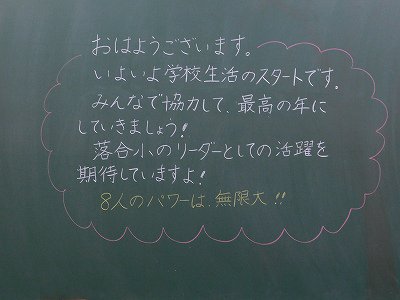 おはようございます。
いよいよ学校生活のスタートです。
みんなで協力して、最高の年に
していきましょう!
落合小のリーダーとしての活躍を
期待していますよ!
8人のパワーは、無限大!!